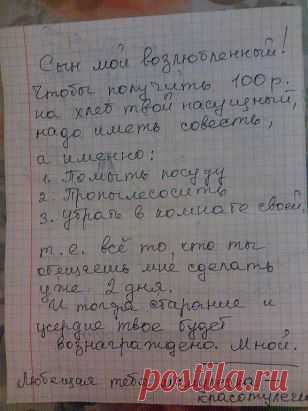 Сын мой возлюбленный!
Чтобы получить 100 р.
на хлеб твой насущный,
надо иметь совесть,
а именно:
1. Помыть посуду
2. Пропылесосить
3. Убрать в комнате своей,
т.е. всё то, что ты
обещаешь мне сделать
уже 2 дня.
И тогда старание и
усердие твое будет
вознаграждено. Мной.
Любящая тебя
красотулечка
postila.ru